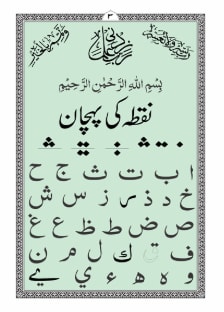 ۳
رب زدنی علما
بِسْمِ اللهِ الرَّحْمٰنِ الرَّحِيْمِ
نقطہ کی پہچان
ا ب ت ث ج ح
خ د ذ ر ز س ش
ص ض ط ظ ع غ
ف ق ك ل م ن
و ه ء ي ے